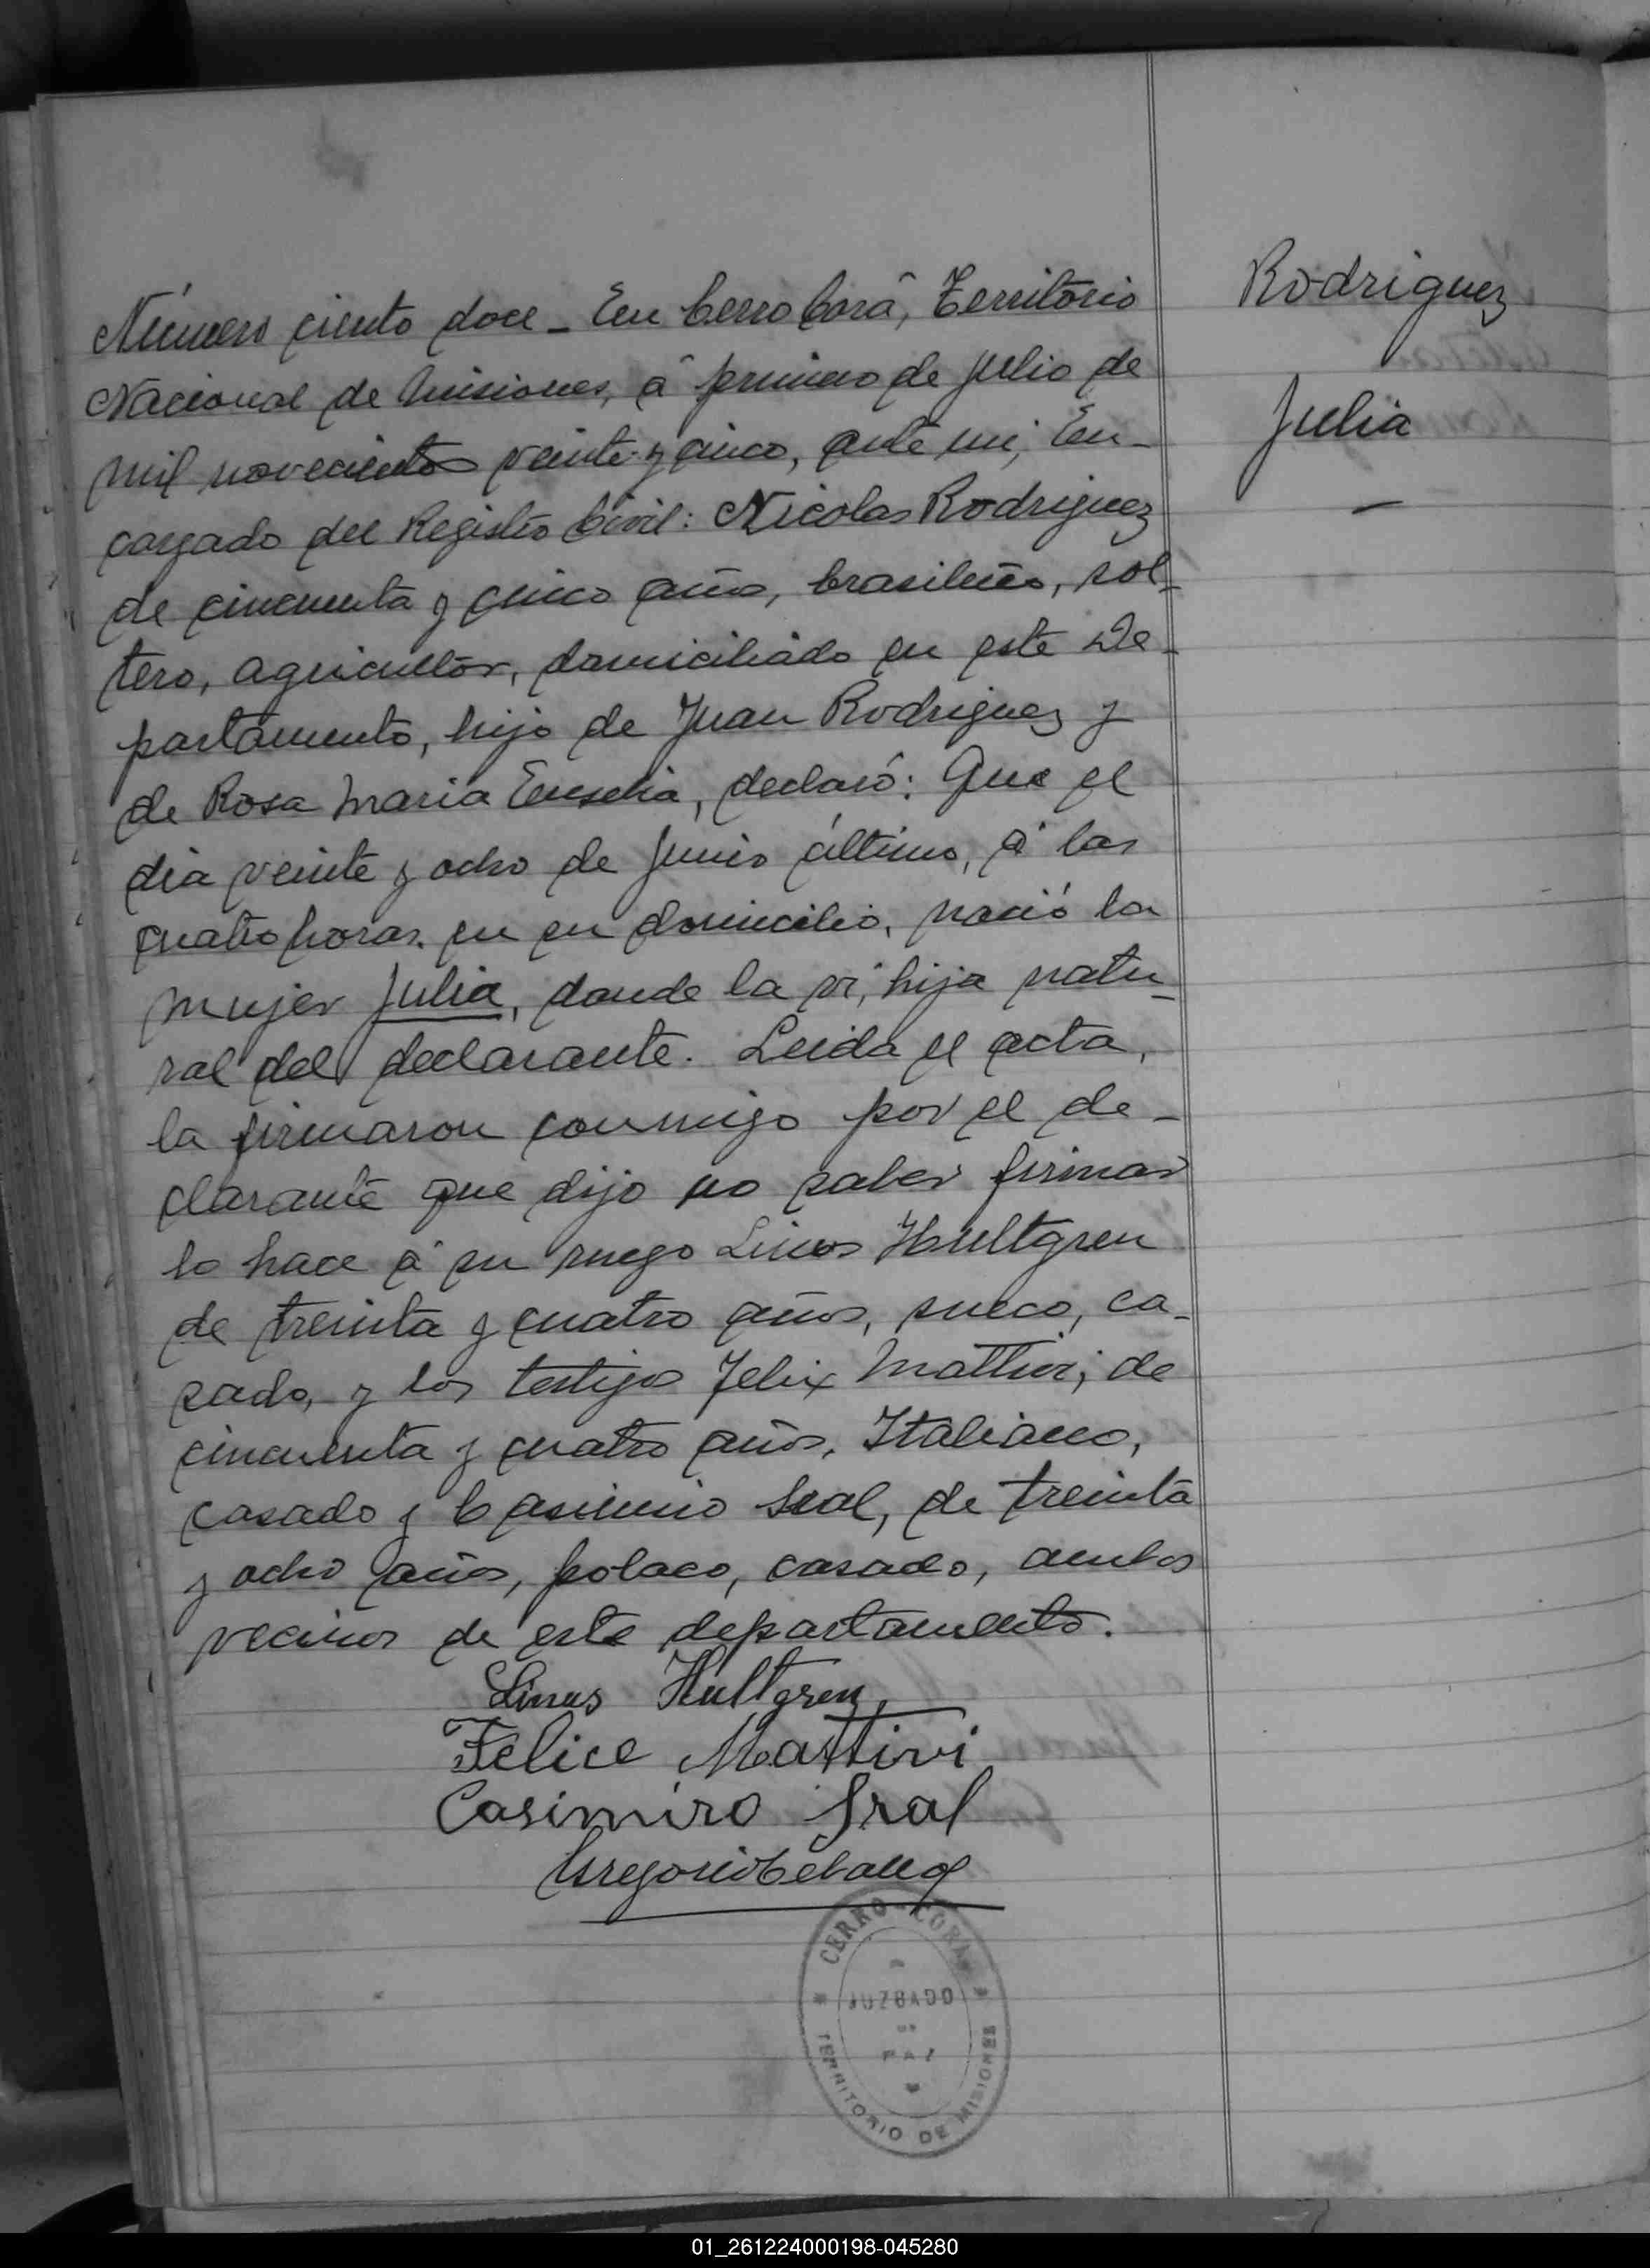 Número ciento doce _ En Cerro Corá, Territorio
Nacional de Misiones, á primero de julio de
mil novecientos veinte y cinco, ante mi, En-
cargado del Registro Civil: Nicolas Rodriguez
de cincuenta y cinco años, brasileño, sol-
tero, agricultor, domiciliado en este De-
partamento, hijo de Juan Rodriguez y
de Rosa Maria declaró: Que el
dia veinte y ocho de Junio último, á las
cuatro horas. en su domicilio, nació la
mujer Julia, donde la vi, hija natu-
ral del declarante. Leida el acta,
la firmaron conmigo por el de-
clarante que dijo no saber firmar
lo hace á su ruego Linus Hultgren
de treinta y cuatro años, sueco, ca-
sado, y los testigos Felix Mattivi, de
cincuenta y cuatro años, Italiano,
casado y Casimiro Sral, de treinta
y ocho años, polaco, casado, ambos
vecinos de este departamento.
Linus Hultgren
Felice Mattivi
Casimiro Sral
Gregorio
CERRO-CORA
JUZGADO
DE
PAZ
TERRITORIO DE MISIONES
Rodriguez
Julia
01_261224000198-045280